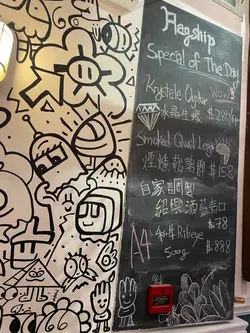 Flagship
Special of The Day
Krystale Oyster Wow!
水晶生蠔 $28/pc
Smoked Quail Legs
煙燻鵪鶉脾 $158
自家製
紹興酒
$78
A4 和牛Ribeye
500g $888